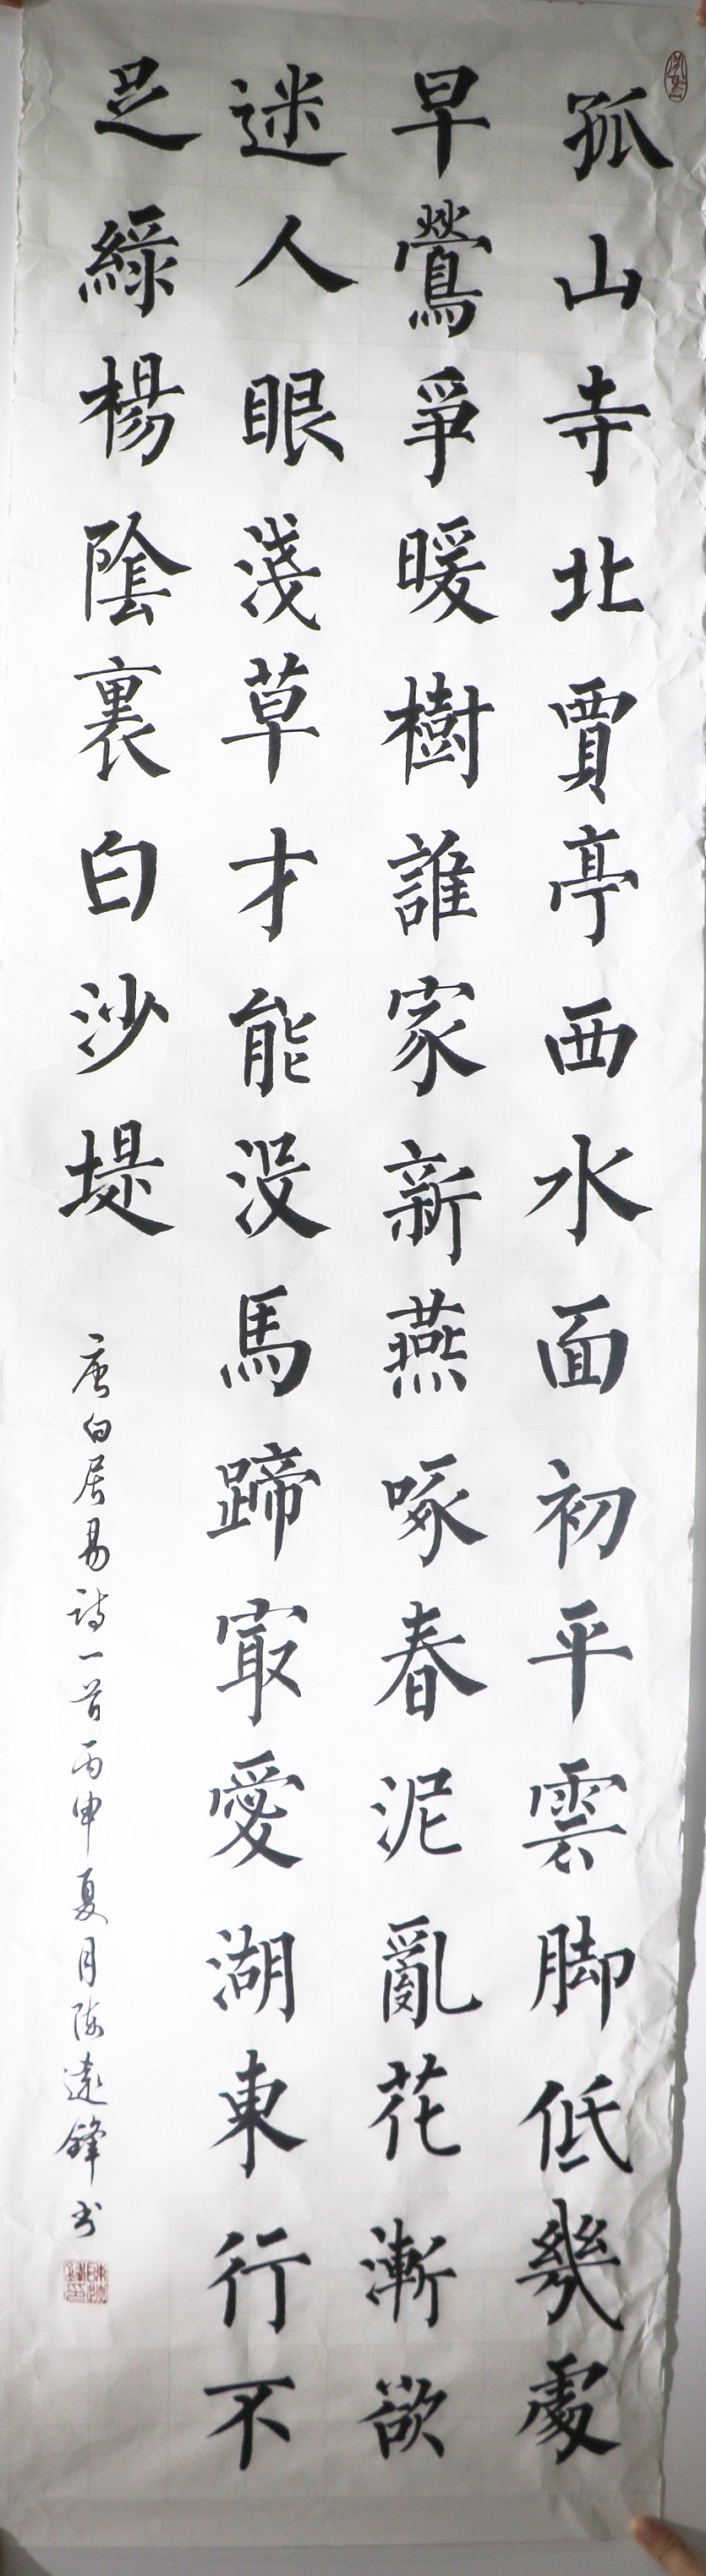 孤山寺北賈亭西水面初平雲脚低幾處
早鶯爭暖樹誰家新燕啄春泥亂花漸欲
迷人眼淺草才能没馬蹄最愛湖東行不
足綠楊陰裏白沙堤
唐白居易詩一首丙申夏月陈遠鋒书